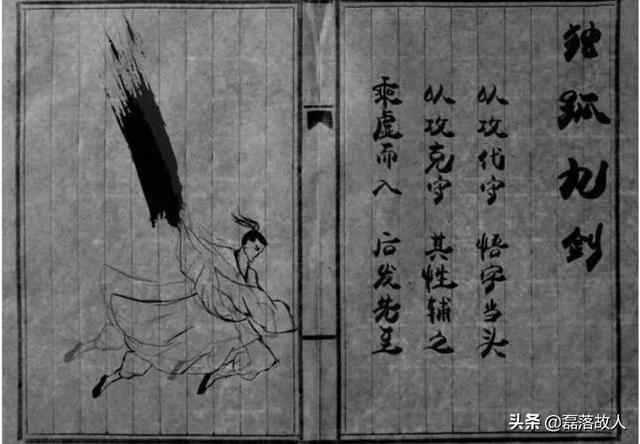 独孤九剑
以攻代守 悟字当头
以攻克守 其性辅之
乘虚而入 后发先至
头条 @磊落故人